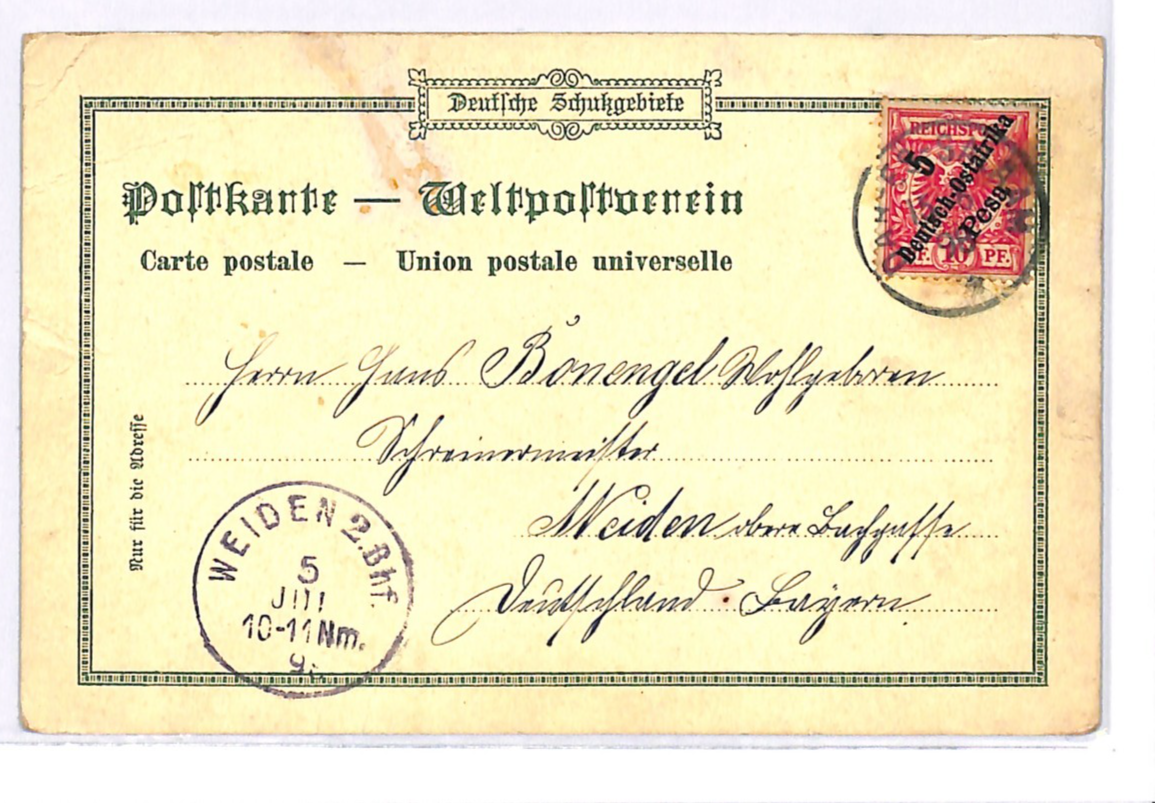 Deutsche Schutzgebiete
REICHSPO
5
Deutsch-Ostafrika
Pesa
PF. 10 PF.
Postkarte — Weltpostverein
Carte postale — Union postale universelle
Herrn Hans Bönengel Wohlgeboren
Schreinermeister
Weiden obere Bachgasse
Deutschland. Bayern.
Nur für die Adresse
WEIDEN 2. Bhf.
5
JUL
10-11 Nm.